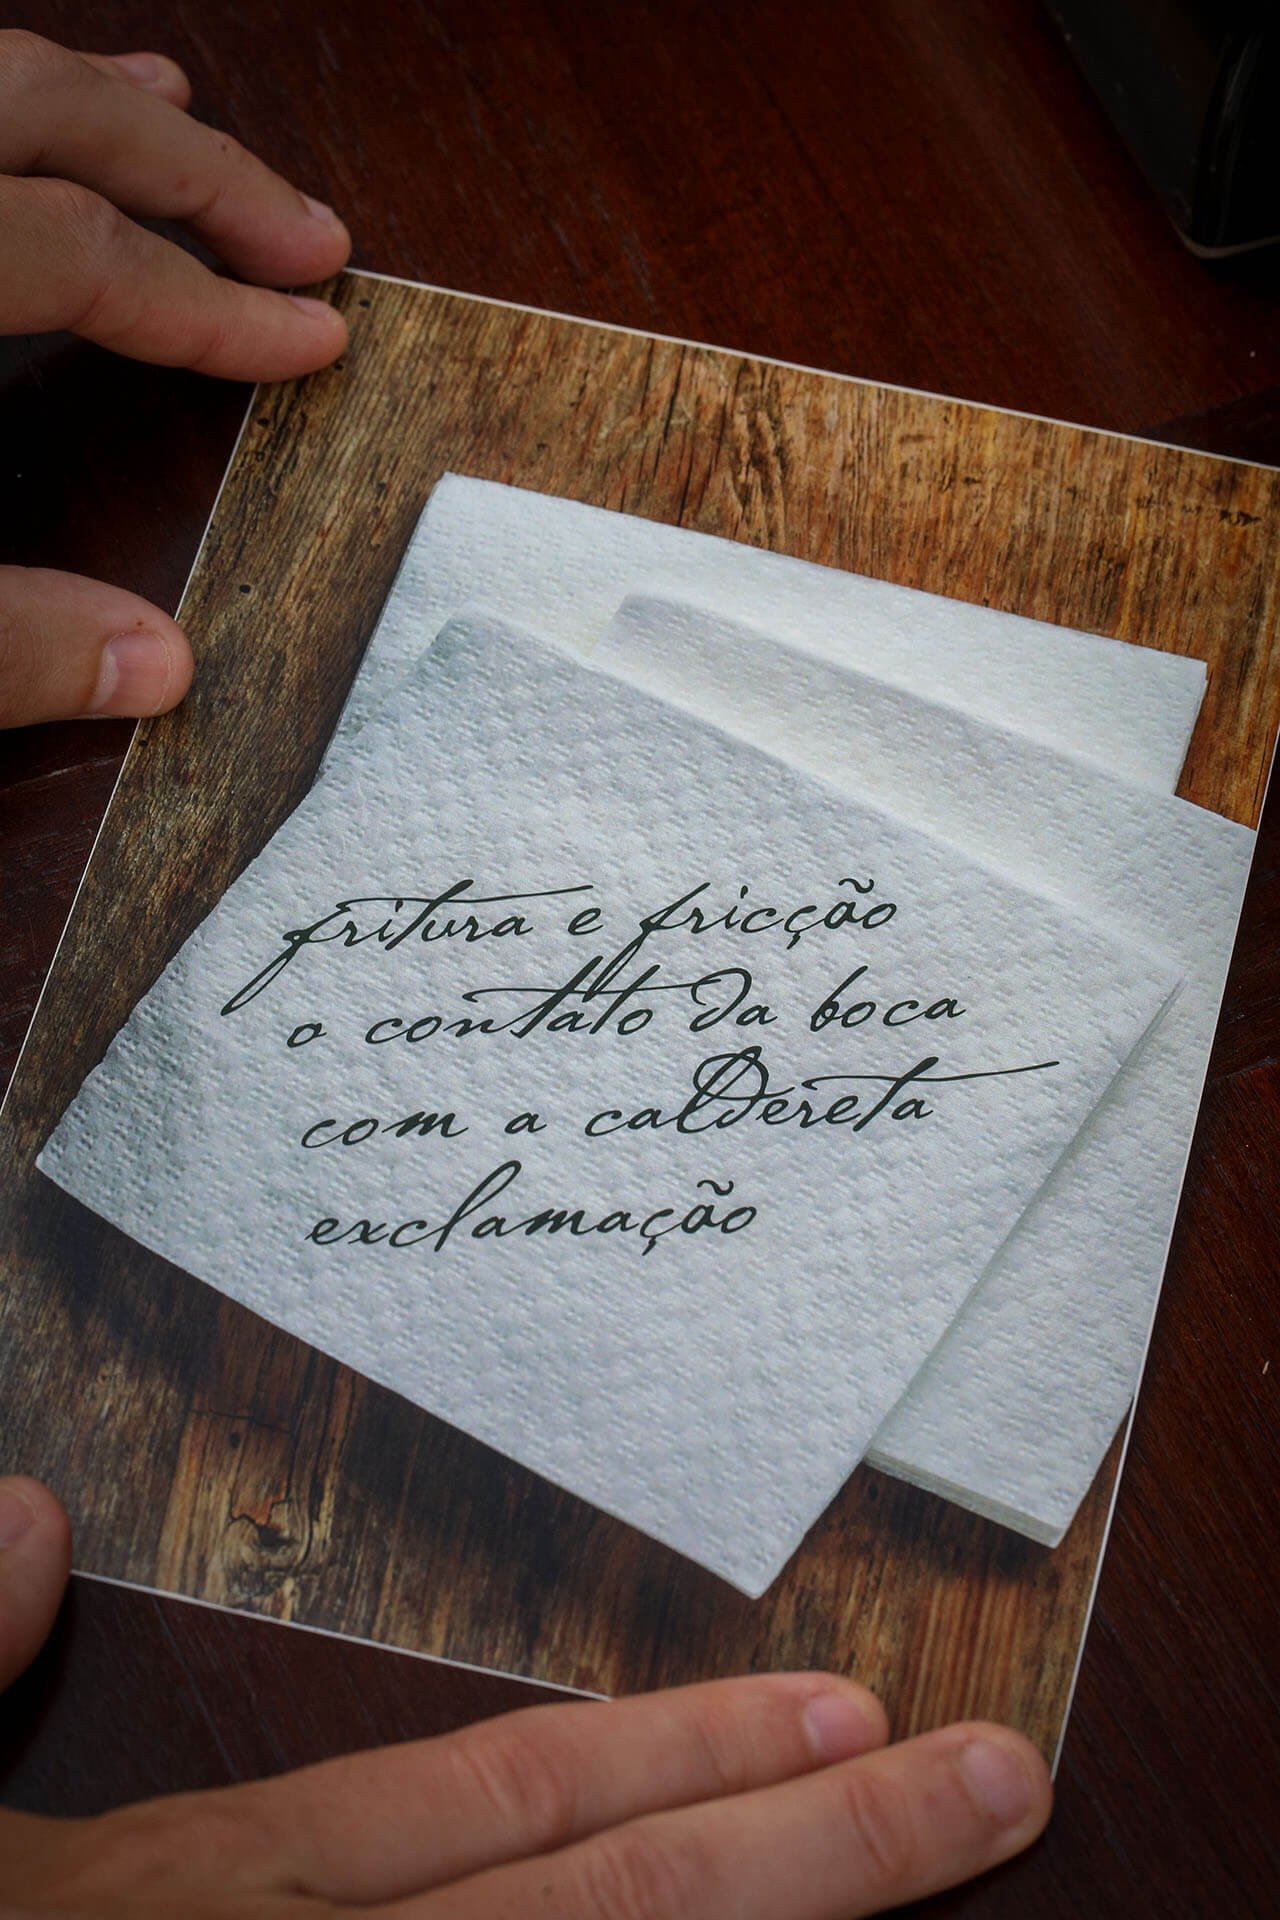 fritura e fricção
o contato da boca
com a caldereta
exclamação